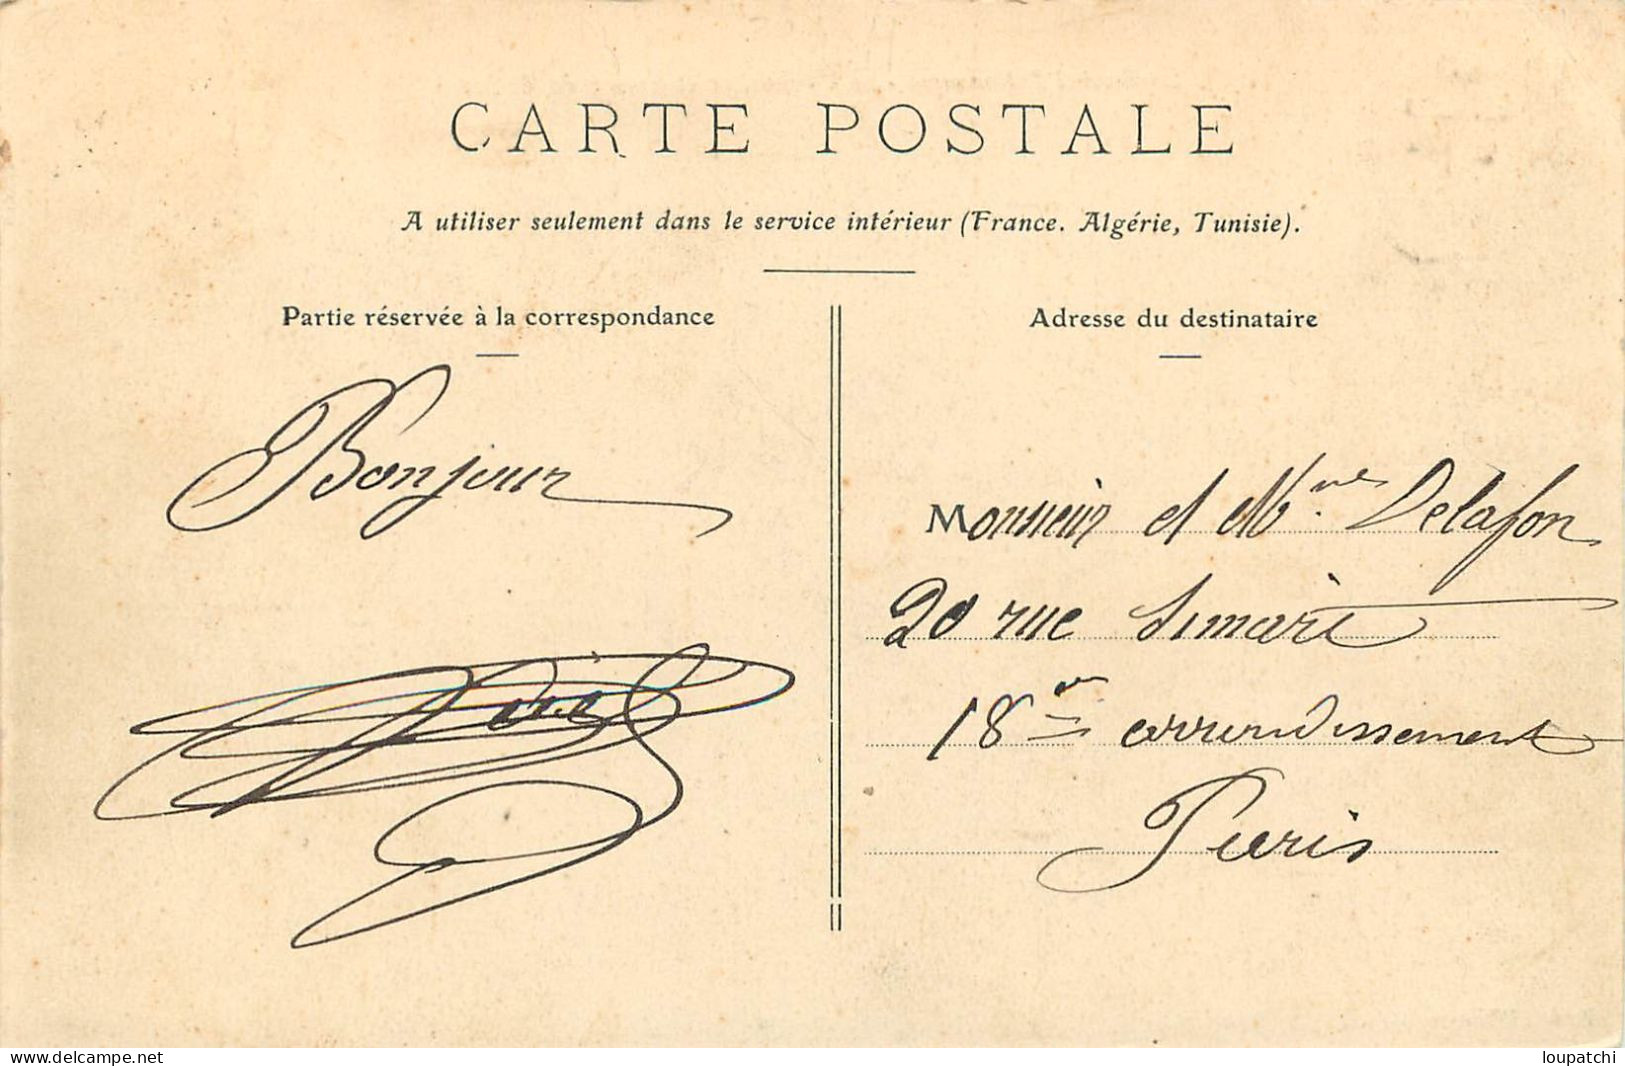 CARTE POSTALE
A utiliser seulement dans le service intérieur (France. Algérie, Tunisie).
Partie réservée à la correspondance
Bonjour
Adresse du destinataire
Monsieur et Mme Delafon
20 rue Simart
18me arrondissement
Paris
www.delcampe.net
loupatchi